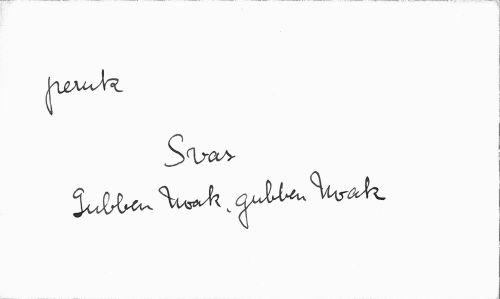 peruk
Svar
Gubben Noak, gubben Noak